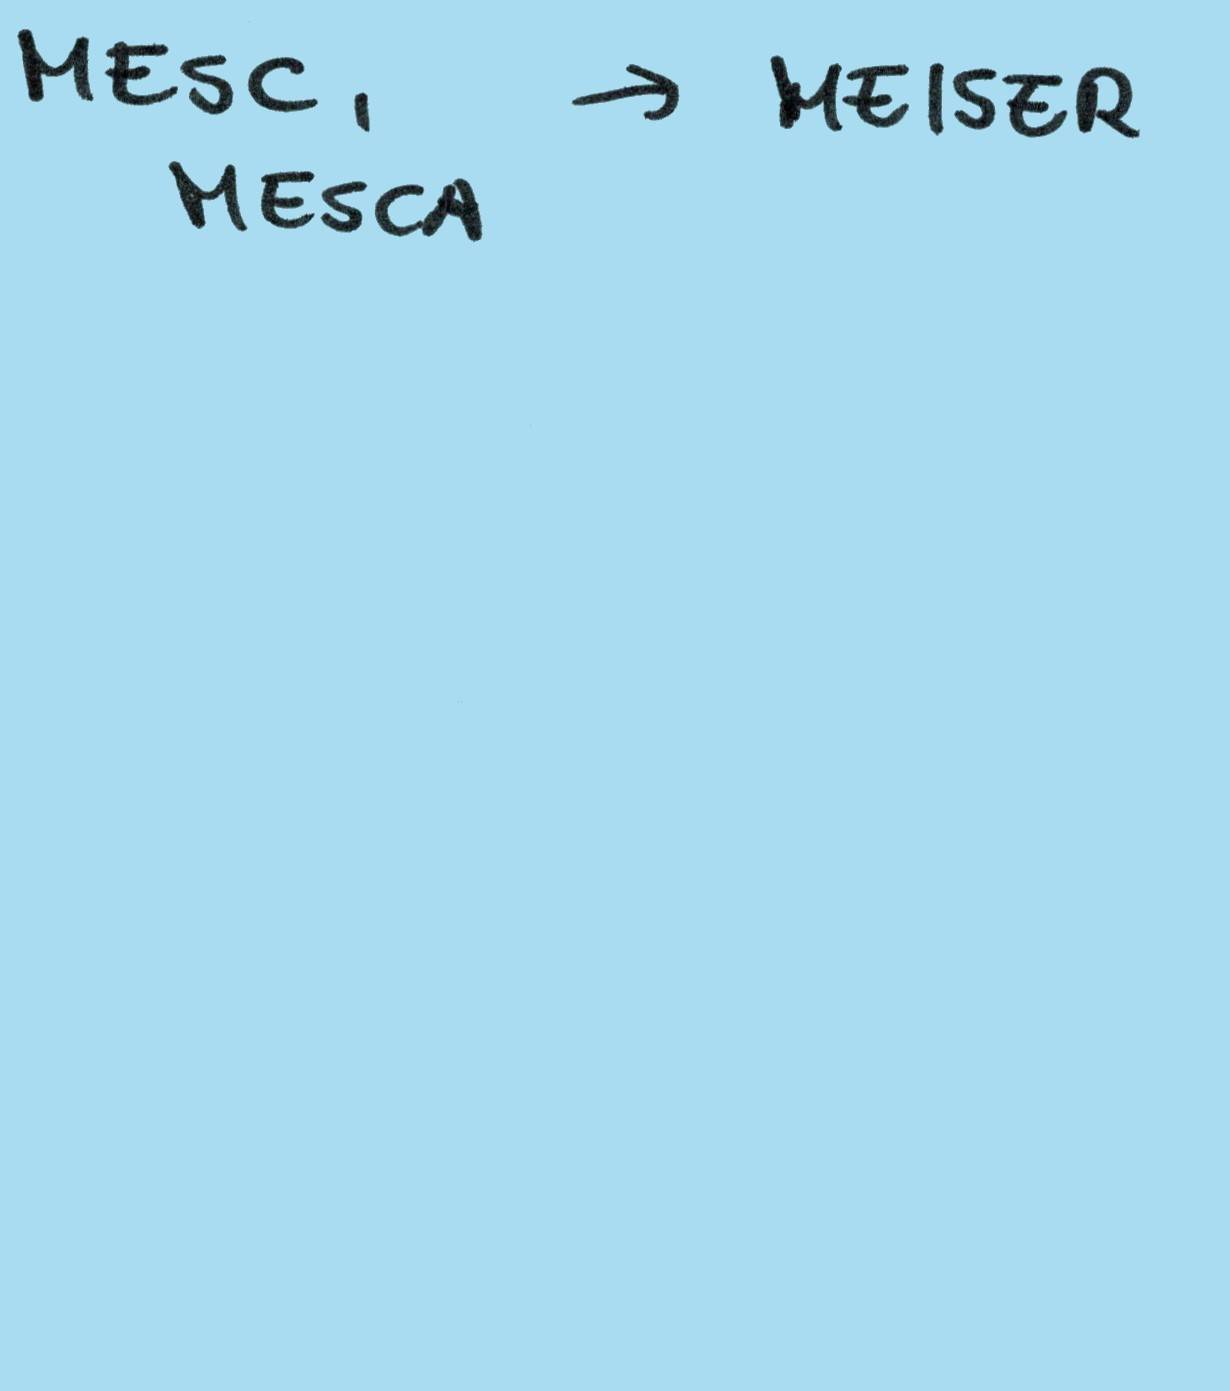 MESC, → MEISER
MESCA